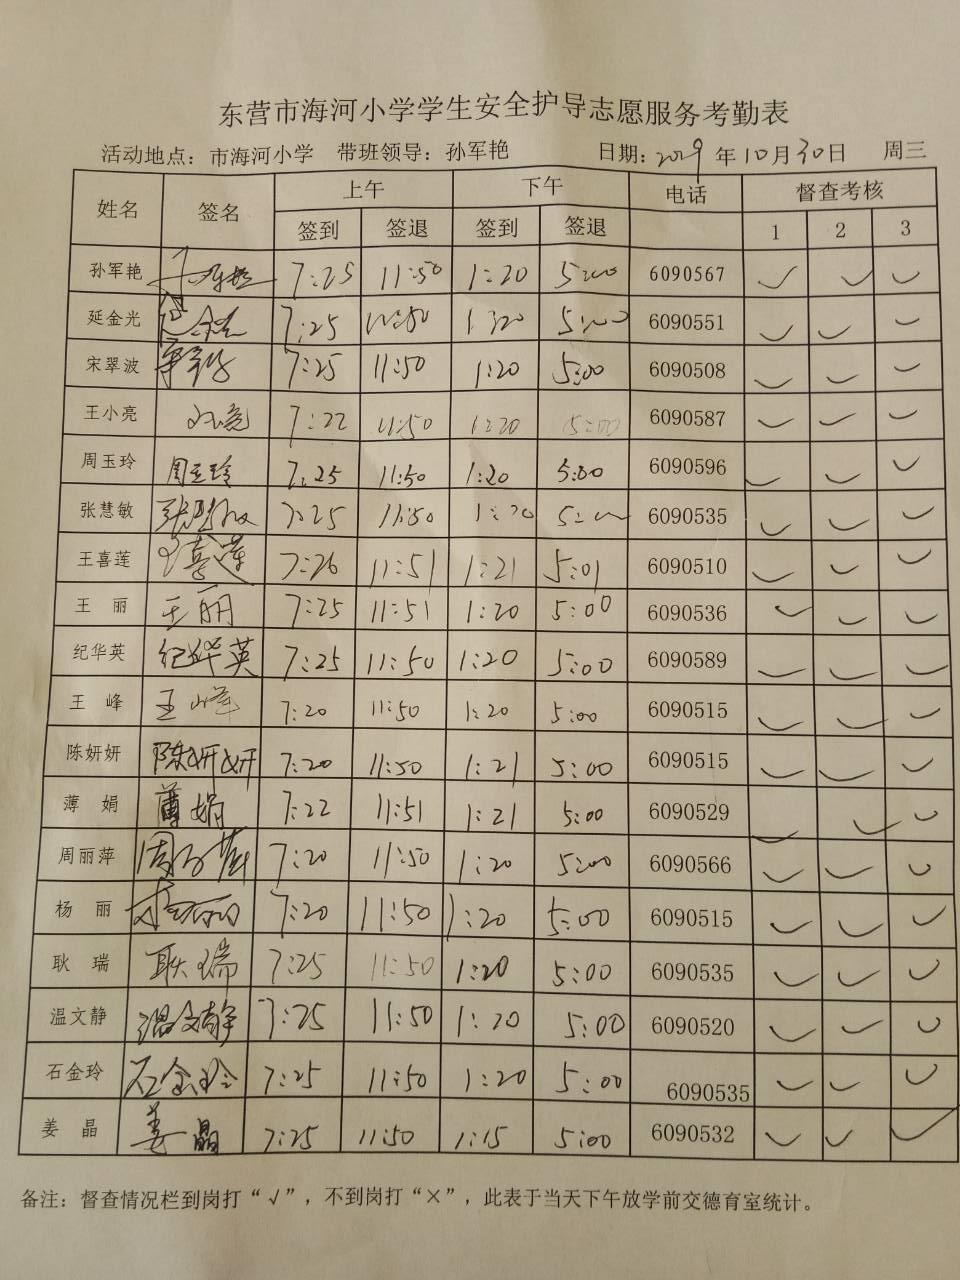 东营市海河小学学生安全护导志愿服务考勤表
活动地点：市海河小学 带班领导：孙军艳 日期：2019年10月30日 周三
姓名 签名 上午 下午 电话 督查考核
签到 签退 签到 签退 1 2 3
孙军艳 孙军艳 7:25 11:50 1:20 5:00 6090567 ✓ ✓ ✓
延金光 延金光 7:25 11:50 1:20 5:00 6090551 ✓ ✓ ✓
宋翠波 7:25 11:50 1:20 5:00 6090508 ✓ ✓ ✓
王小亮 王小亮 7:22 11:50 1:20 5:00 6090587 ✓ ✓ ✓
周玉玲 周玉玲 7:25 11:50 1:20 5:00 6090596 ✓ ✓ ✓
张慧敏 张慧敏 7:25 11:50 1:20 5:00 6090535 ✓ ✓ ✓
王喜莲 王喜莲 7:26 11:51 1:21 5:01 6090510 ✓ ✓ ✓
王 丽 王丽 7:25 11:51 1:20 5:00 6090536 ✓ ✓ ✓
纪华英 纪华英 7:25 11:50 1:20 5:00 6090589 ✓ ✓ ✓
王 峰 王峰 7:20 11:50 1:20 5:00 6090515 ✓ ✓ ✓
陈妍妍 陈妍妍 7:20 11:50 1:21 5:00 6090515 ✓ ✓ ✓
薄 娟 薄娟 7:22 11:51 1:21 5:00 6090529 ✓ ✓ ✓
周丽萍 周丽萍 7:20 11:50 1:20 5:00 6090566 ✓ ✓ ✓
杨 丽 杨丽 7:20 11:50 1:20 5:00 6090515 ✓ ✓ ✓
耿 瑞 耿瑞 7:25 11:50 1:20 5:00 6090535 ✓ ✓ ✓
温文静 温文静 7:25 11:50 1:20 5:00 6090520 ✓ ✓ ✓
石金玲 石金玲 7:25 11:50 1:20 5:00 6090535 ✓ ✓ ✓
姜 晶 姜晶 7:25 11:50 1:15 5:00 6090532 ✓ ✓ ✓
备注：督查情况栏到岗打“√”，不到岗打“×”，此表于当天下午放学前交德育室统计。